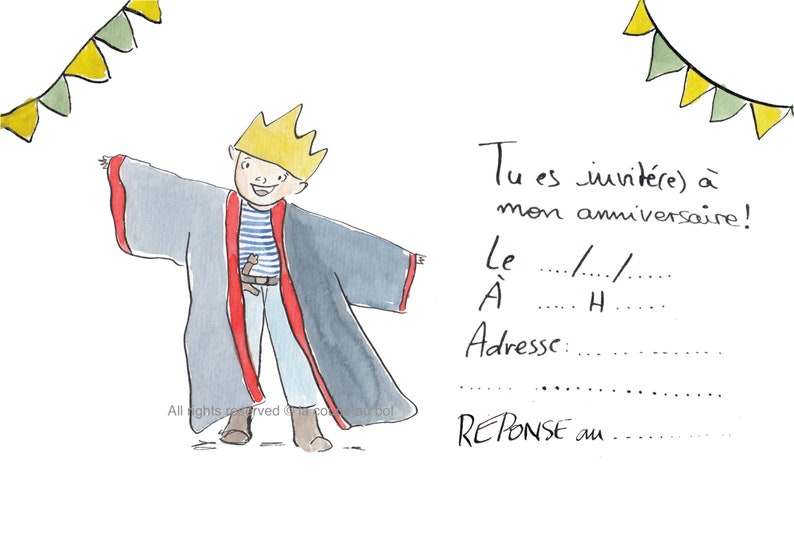 Tu es invité(e) à
mon anniversaire!
Le ..../..../.....
À ..... H ......
Adresse: ... .. .......
...... ..............
REPONSE au ...........
All rights reserved © la coupe au bol